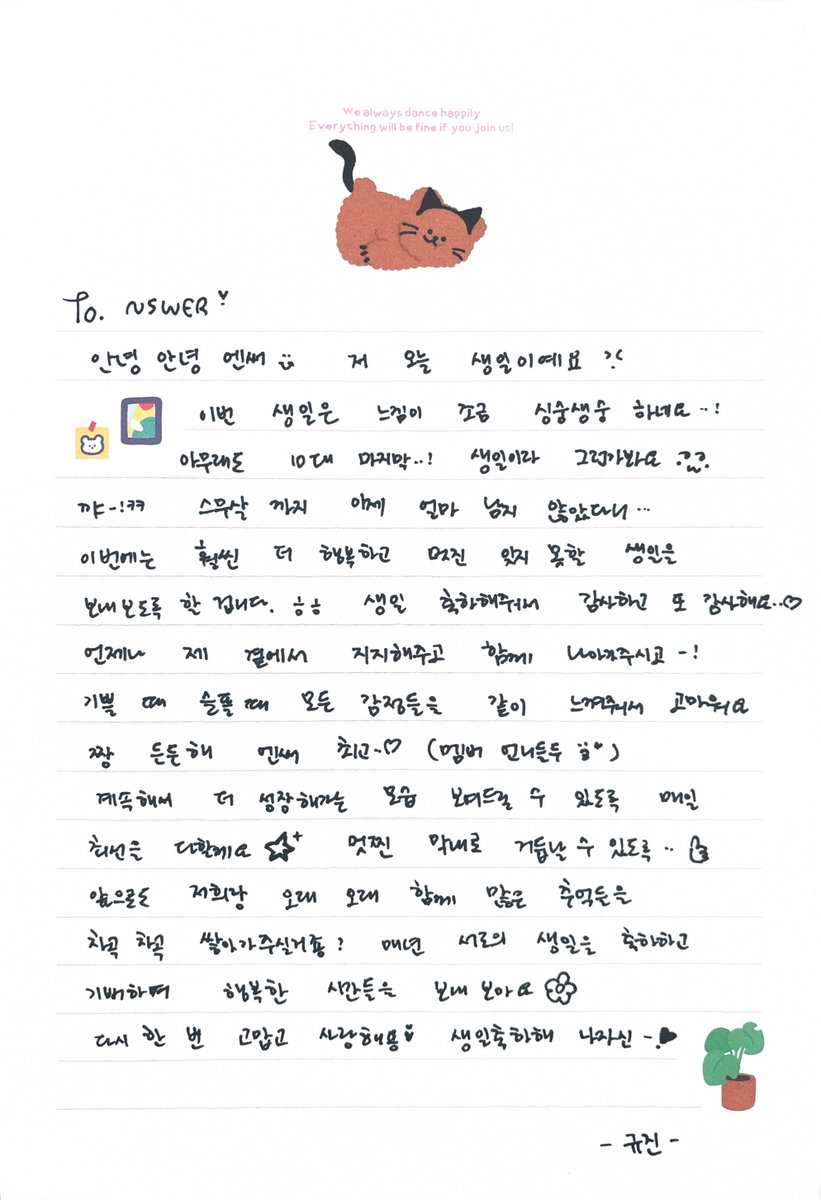 We always dance happily
Everything will be fine if you join us!
To. NSWER♥
안녕 안녕 엔써 저 오늘 생일이예요
이번 생일은 느낌이 조금 싱숭생숭 하네요..!
아무래도 10대 마지막..! 생일이라 그런가봐요
꺄-!ㅋㅋ 스무살 까지 이제 얼마 남지 않았다니...
이번에는 훨씬 더 행복하고 멋진 잊지 못할 생일을
보내보도록 할 겁니다. ㅎㅎ 생일 축하해줘서 감사하고 또 감사해요..♡
언제나 제 곁에서 지지해주고 함께 나아가주시고 -!
기쁠 때 슬플 때 모든 감정들을 같이 느껴줘서 고마워요
짱 든든해 엔써 최고-♡ (멤버 언니들두)
계속해서 더 성장해가는 모습 보여드릴 수 있도록 매일
최선을 다할게요 ☆+ 멋찐 막내로 거듭날 수 있도록..
앞으로도 저희랑 오래 오래 함께 많은 추억들을
차곡 차곡 쌓아가주실거죵? 매년 서로의 생일을 축하하고
기뻐하며 행복한 시간들을 보내 보아요
다시 한 번 고맙고 사랑해용 생일축하해 나자신 -!♥
- 규진 -